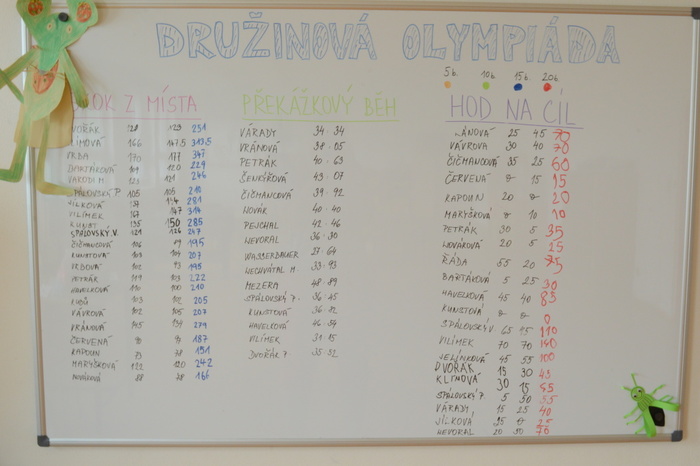 DRUŽINOVÁ OLYMPIÁDA
5b. 10b. 15b. 20b.
OK Z MÍSTA
VOŘÁK 231
ÍMOVÁ 166 147.5 313.5
VRBA 170 177 347
BARTÁKOVÁ 109 120 229
121 246
SPÁLOVSKÝ P. 105 105 210
JÍLKOVÁ 281
VILÍMEK 167 147 314
KUNST 135 150 285
SPÁLOVSKÝ V. 121 126 247
ČIČMANCOVÁ 106 89 195
KUNSTOVÁ 103 104 207
VRBOVÁ 102 93 195
PETRÁK 119 103 222
HAVELKOVÁ 110 100 210
103 102 205
VÁVROVÁ 102 105 207
VRÁNOVÁ 145 134 279
ČERVENÁ 187
KAPOUN 73 78 151
MARYŠKOVÁ 122 120 242
NOVÁKOVÁ 88 78 166
PŘEKÁŽKOVÝ BĚH
VÁRADY 34 · 34
VRÁNOVÁ 38 · 05
PETRÁK 40 · 63
ČENKÝŘOVÁ 43 · 07
ČIČMANCOVÁ 39 · 92
NOVÁK 40 · 40
PEJCHAL 42 · 46
NEVORAL 36 · 30
WASSERBAUER 27 · 64
NECHVÁTAL M 33 · 93
MEZERA 48 · 89
SPÁLOVSKÝ P. 36 · 45
KUNSTOVÁ 36 · 12
HAVELKOVÁ 46 · 54
VILÍMEK 31 · 15
DVOŘÁK ? 35 · 52
HOD NA CÍL
LÁNOVÁ 25 45 70
VÁVROVÁ 30 40 70
ČIČMANCOVÁ 35 25 60
ČERVENÁ 0 15 15
KAPOUN 20 0 20
MARYŠKOVÁ 0 10 10
PETRÁK 30 5 35
NOVÁKOVÁ 20 5 25
ŘÁDA 55 20 75
BARTÁKOVÁ 5 25 30
HAVELKOVÁ 45 40 85
KUNSTOVÁ 0 0 0
SPÁLOVSKÝ V. 65 45 110
VILÍMEK 70 70 140
JELÍNKOVÁ 45 55 100
DVOŘÁK 15 30 45
KLÍMOVÁ 30 15 45
SPÁLOVSKÝ P. 5 50 55
VÁRADY 15 25 40
JÍLKOVÁ 25 0 25
NEVORAL 20 50 70